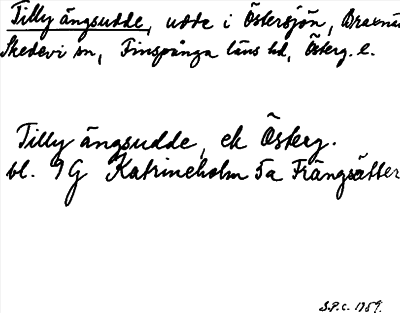 Tilly ängsudde, udde i Östersjön,
Skedevi sn, Finspånga läns hd, Österg. l.
Tilly ängsudde, ek Österg.
bl. 9G Katrineholm 5a Frängsätter
S.P.C. 1959.